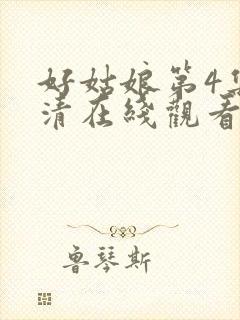 好姑娘第4集
清在綫觀看
魯琴斯